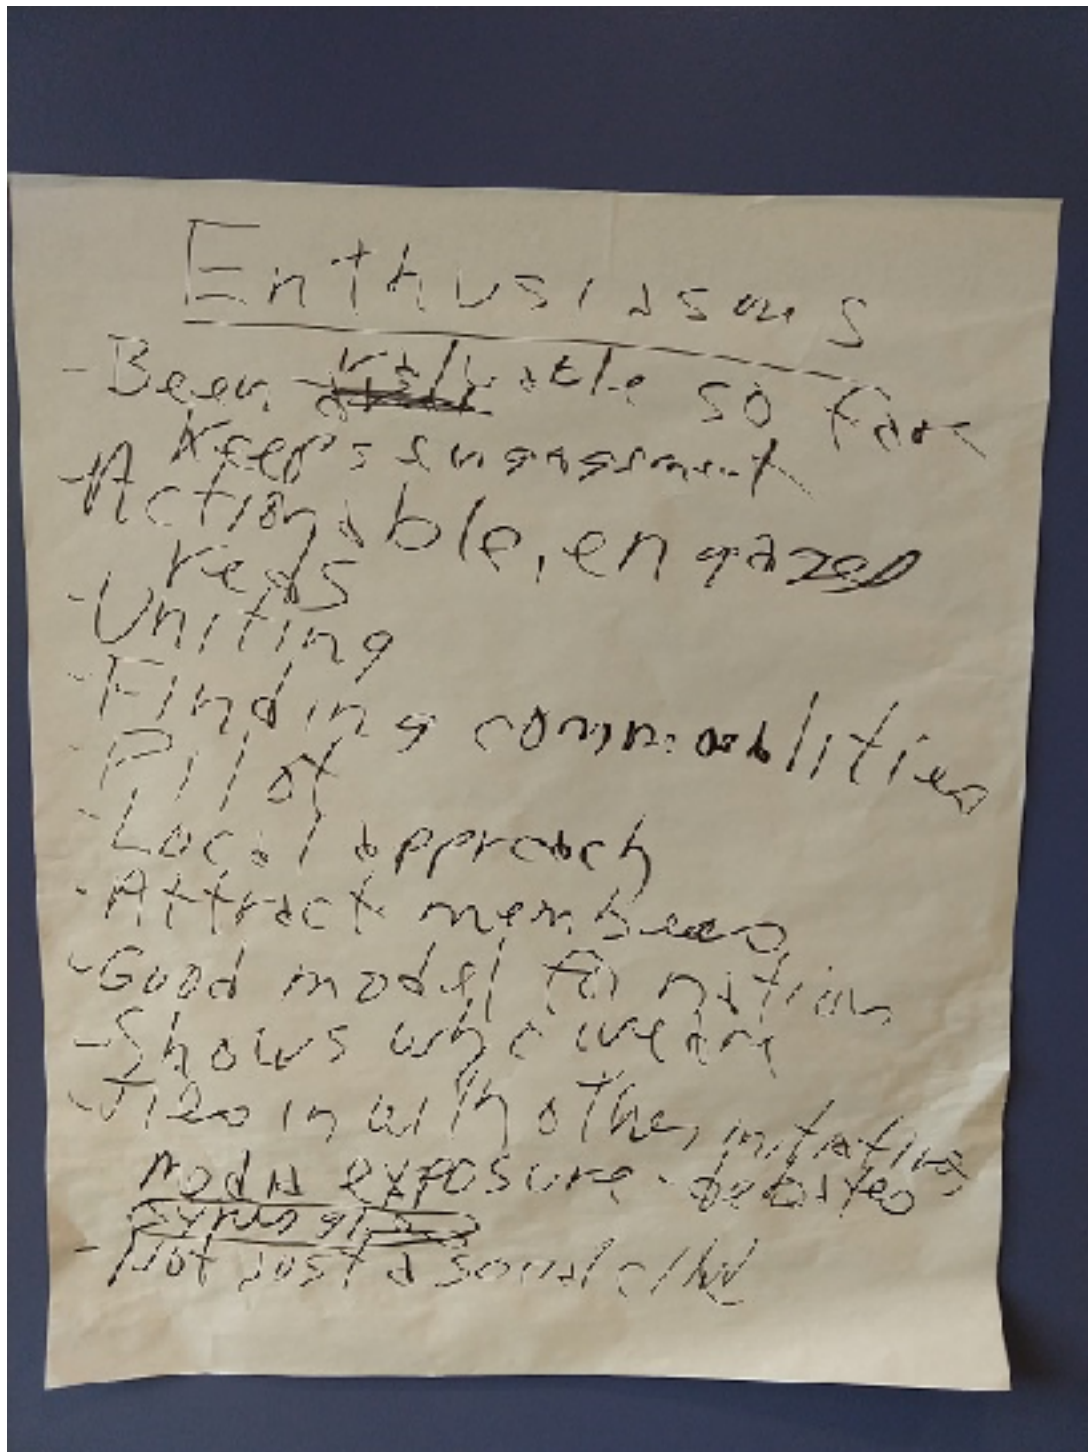 Enthusiasms
- Been valuable so far
Keeps engagement
- Actionable, engaged
reds
- Uniting
- Finding commonalities
- Pilot
- Local approach
- Attract members
- Good model for nation
- Shows who we are
- Ties in with other initiatives
Media exposure - debates
synergies
- Not just a social club